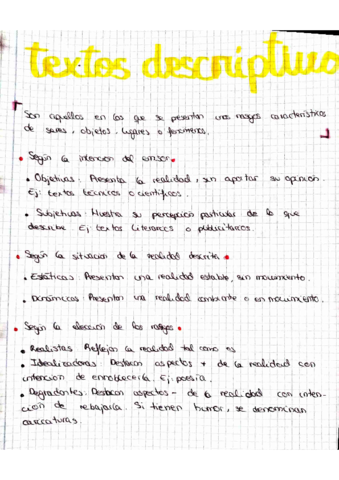 textos descriptivo
Son aquellos en los que se presentan una rasgos característicos
de seres, objetos, lugares o fenómenos.
• Según la intencion del emisor •
• Objetivas: Presenta la realidad, sin aportar su opinión.
Ej: textos técnicos o científicos.
• Subjetivas: Muestra su percepción particular de lo que
describe Ej: textos literarios o publicitarios.
• Según la situacion de la realidad descrita •
• Estáticas: Presentan una realidad estable, sin movimiento.
• Dinámicas: Presentan una realidad cambiante o en movimiento.
• Según la eleccion de los rasgos •
• Realistas: Reflejan la realidad tal como es
• Idealizadoras: Destacan aspectos + de la realidad con
intención de ennoblecerla. Ej: poesía.
• Degradantes: Destacan aspectos - de la realidad con inten-
ción de rebajarla. Si tienen humor, se denominan
caricaturas.